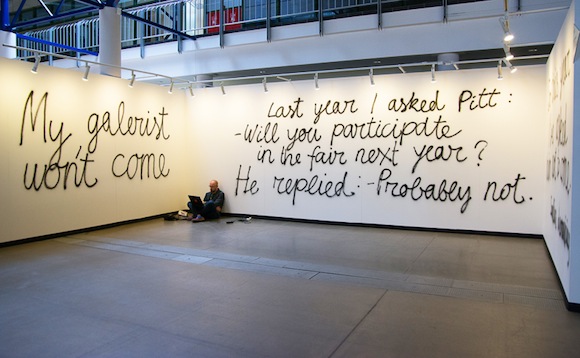 My galerist
won't come
Last year I asked Pitt :
-Will you participate
in the fair next year?
He replied:-Probably not.